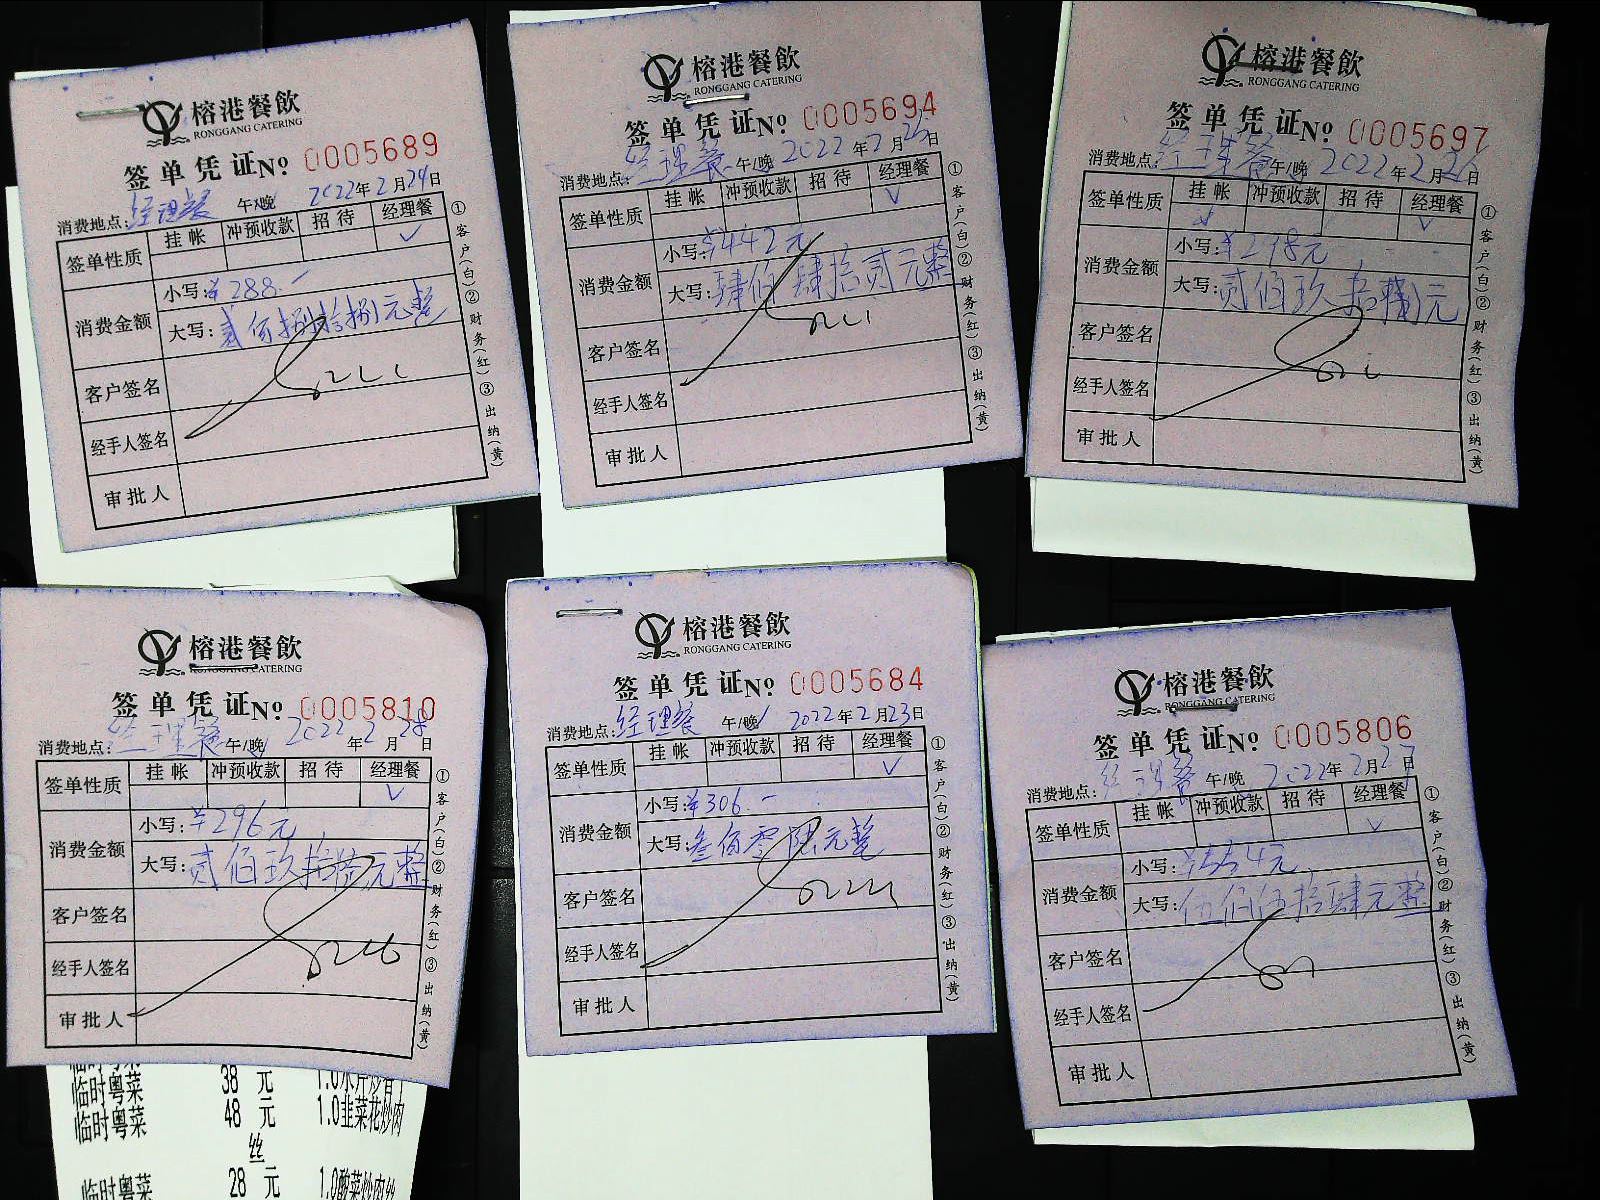 榕港餐飲
RONGGANG CATERING
签单凭证№ 0005689
消费地点:经理餐 午/晚 2022年2月24日
签单性质 挂帐 冲预收款 招待 经理餐
✓
消费金额 小写:¥288.-
大写:贰佰捌拾捌元整
客户签名
经手人签名
审批人
①客户(白)②财务(红)③出纳(黄)
榕港餐飲
RONGGANG CATERING
签单凭证№ 0005694
消费地点:经理餐 午/晚 2022年2月25日
签单性质 挂帐 冲预收款 招待 经理餐
✓
消费金额 小写:¥442元
大写:肆佰肆拾贰元整
客户签名
经手人签名
审批人
①客户(白)②财务(红)③出纳(黄)
榕港餐飲
RONGGANG CATERING
签单凭证№ 0005697
消费地点:经理餐 午/晚 2022年2月26日
签单性质 挂帐 冲预收款 招待 经理餐
✓ ✓
消费金额 小写:¥298元
大写:贰佰玖拾捌元
客户签名
经手人签名
审批人
①客户(白)②财务(红)③出纳(黄)
榕港餐飲
RONGGANG CATERING
签单凭证№ 0005810
消费地点:经理餐 午/晚 2022年2月28日
签单性质 挂帐 冲预收款 招待 经理餐
✓
消费金额 小写:¥296元
大写:贰佰玖拾陆元整
客户签名
经手人签名
审批人
①客户(白)②财务(红)③出纳(黄)
临时粤菜 38 元
临时粤菜 48 元 1.0韭菜花炒肉
丝
临时粤菜 28 元 1.0酸菜炒肉丝
榕港餐飲
RONGGANG CATERING
签单凭证№ 0005684
消费地点:经理餐 午/晚 2022年2月23日
签单性质 挂帐 冲预收款 招待 经理餐
✓
消费金额 小写:¥306.-
大写:叁佰零陆元整
客户签名
经手人签名
审批人
①客户(白)②财务(红)③出纳(黄)
榕港餐飲
RONGGANG CATERING
签单凭证№ 0005806
消费地点:经理餐 午/晚 2022年2月27日
签单性质 挂帐 冲预收款 招待 经理餐
✓
消费金额 小写:¥554元
大写:伍佰伍拾肆元整
客户签名
经手人签名
审批人
①客户(白)②财务(红)③出纳(黄)